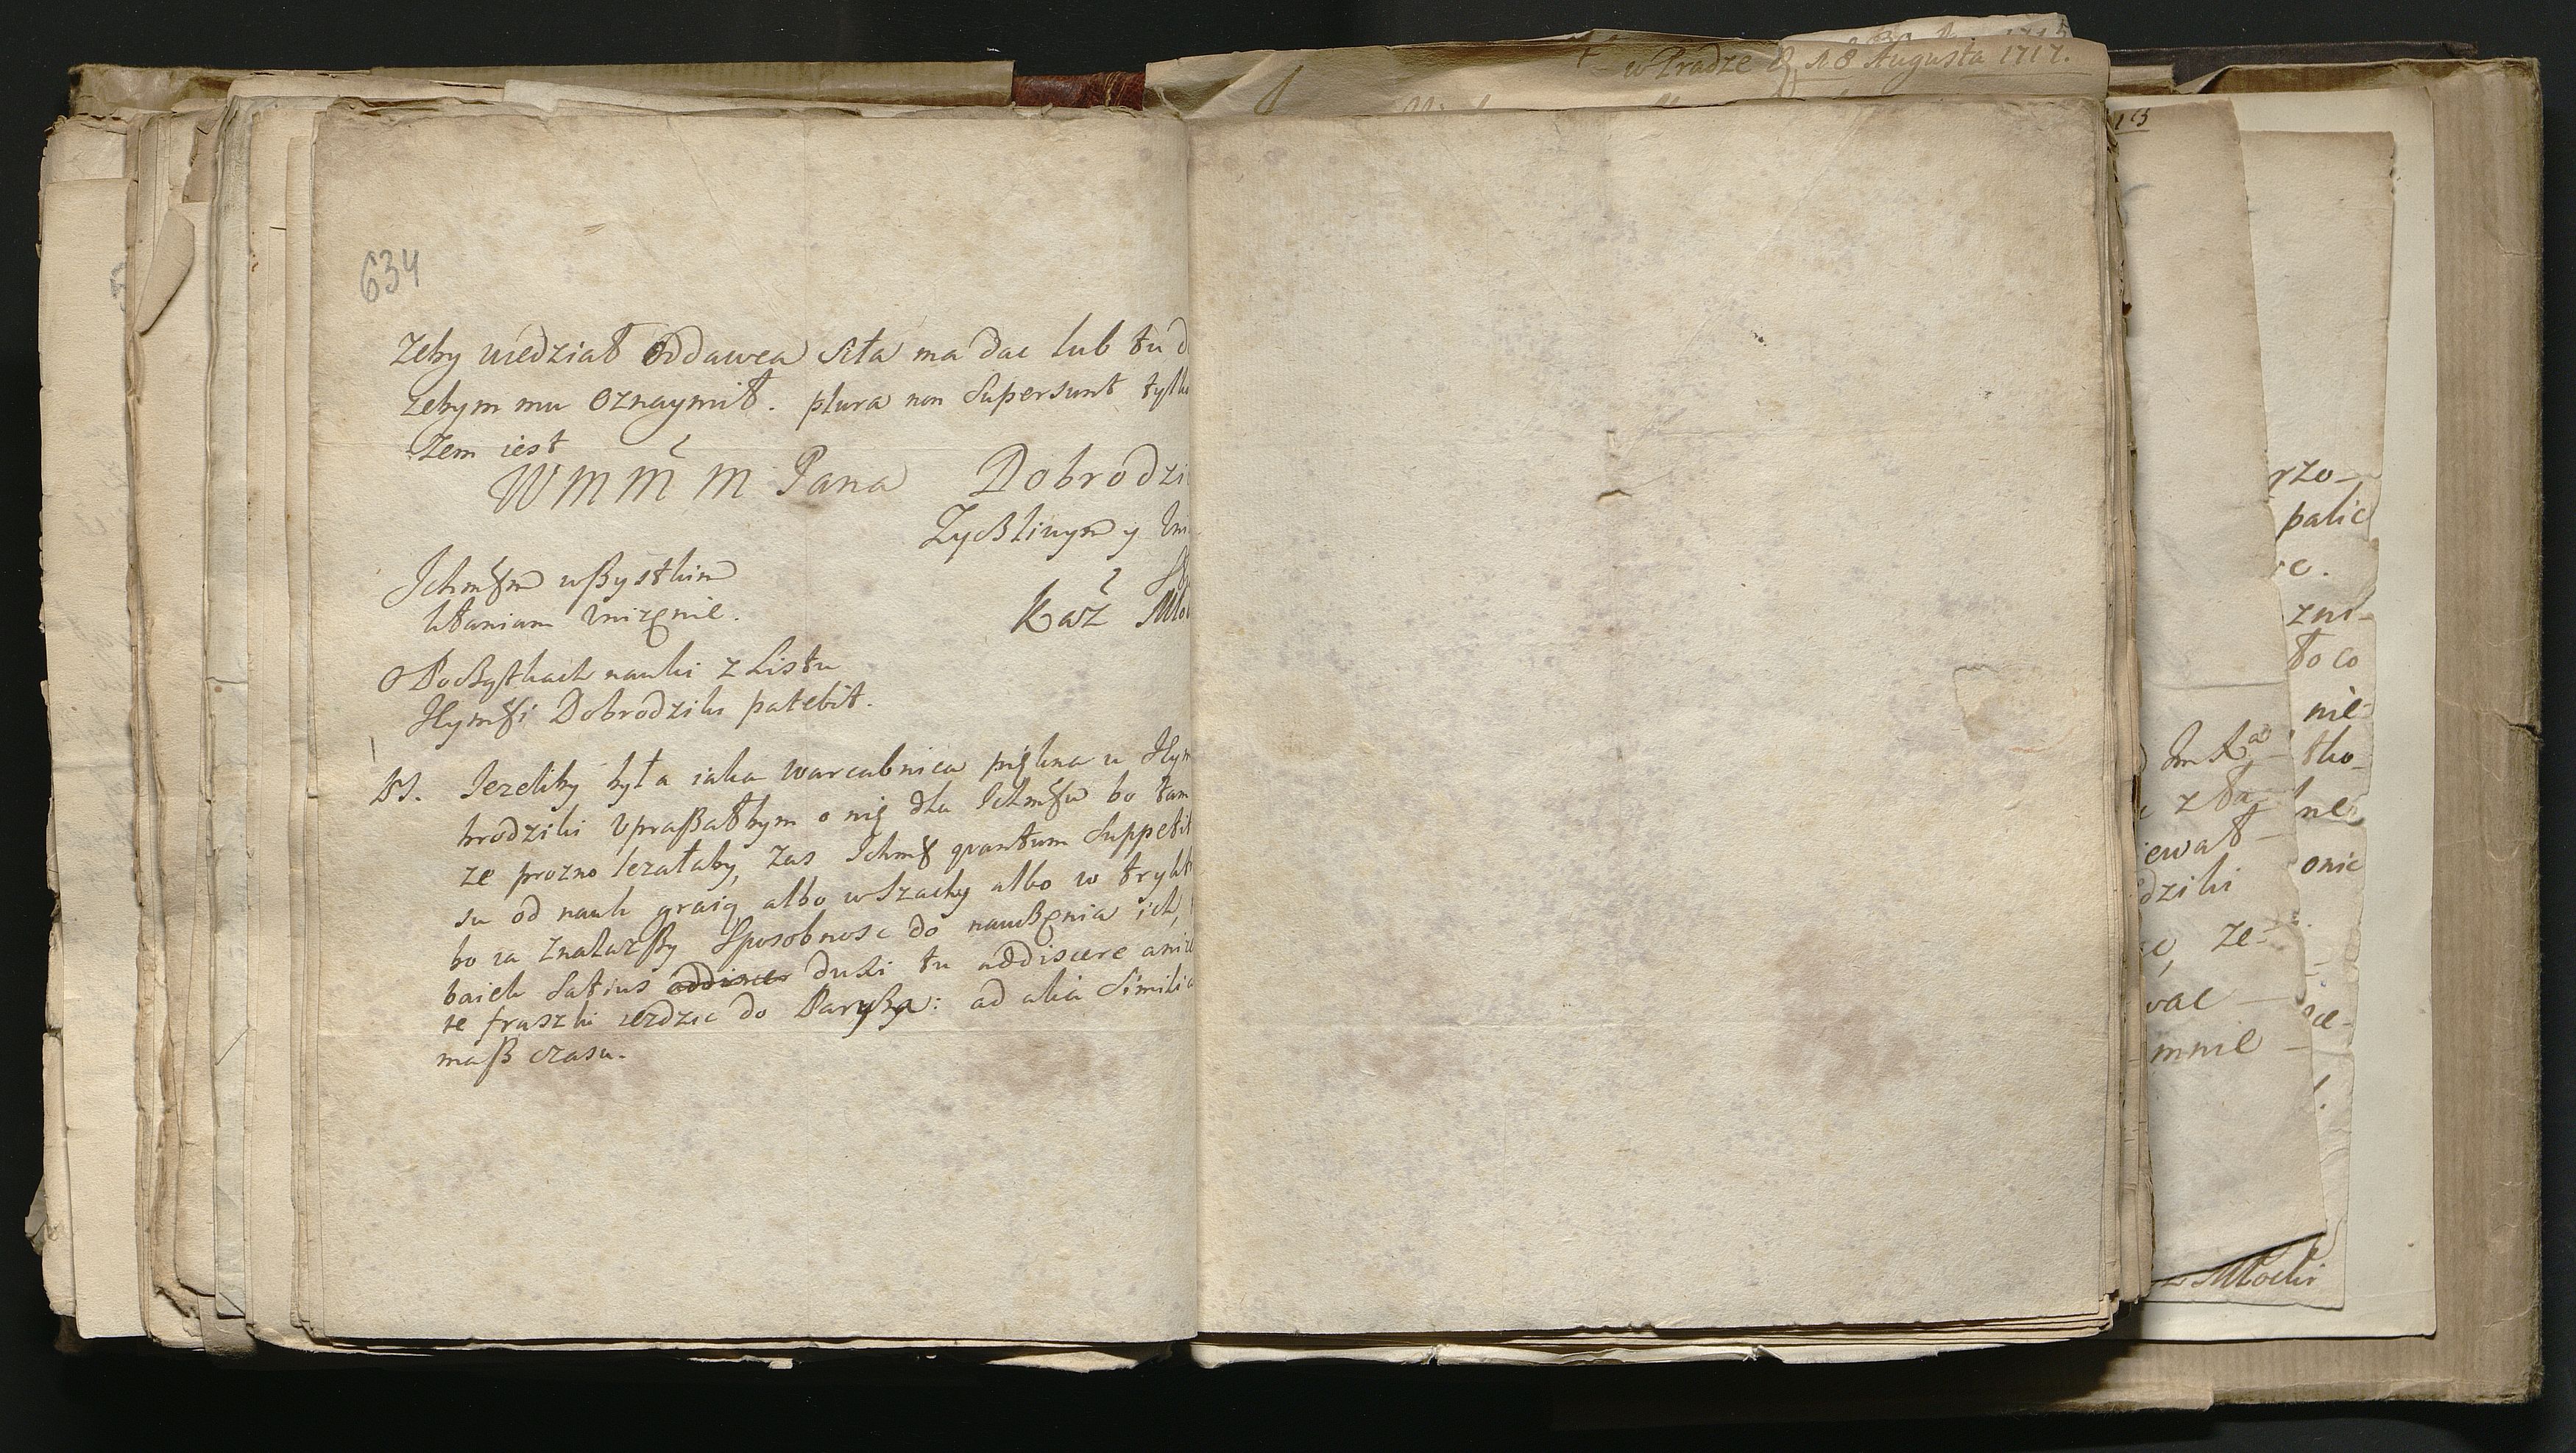 w Pradze d. 18 Augusta 1717.
634
Zeby wiedział oddawca siła ma dac lub tu
zebym mu oznaymił. plura non supersunt tylko
Zem iest
W M M M Pana Dobrodzi
Zyczliwym y
Ichmściom wszystkim
kłaniam unizęnie.
Kaz Mło
O Poczytkach nauki z Listu
JeymSci Dobrodziki patebit.
PS. Iezeliby była iaka warcabnica piękna u Jeym
brodziki upraszałbym o nię dla Ichmściow bo tam
ze prozno lezałaby, zas Ichmść quantum suppetit
su od nauk graią albo w szachy albo w trykt
bo ia znalazszy sposobnosc do nauczęnia ich,
satius addiscere duxi tu addiscere aniz
te fraszki iezdzic do Paryza: ad alia similia
masz czasu.
13
rzo-
palic
c.
zni-
to co
nie-
tko-
ne
onic
z ta
ewał
dziki
ze-
wac
mnie
Młocki